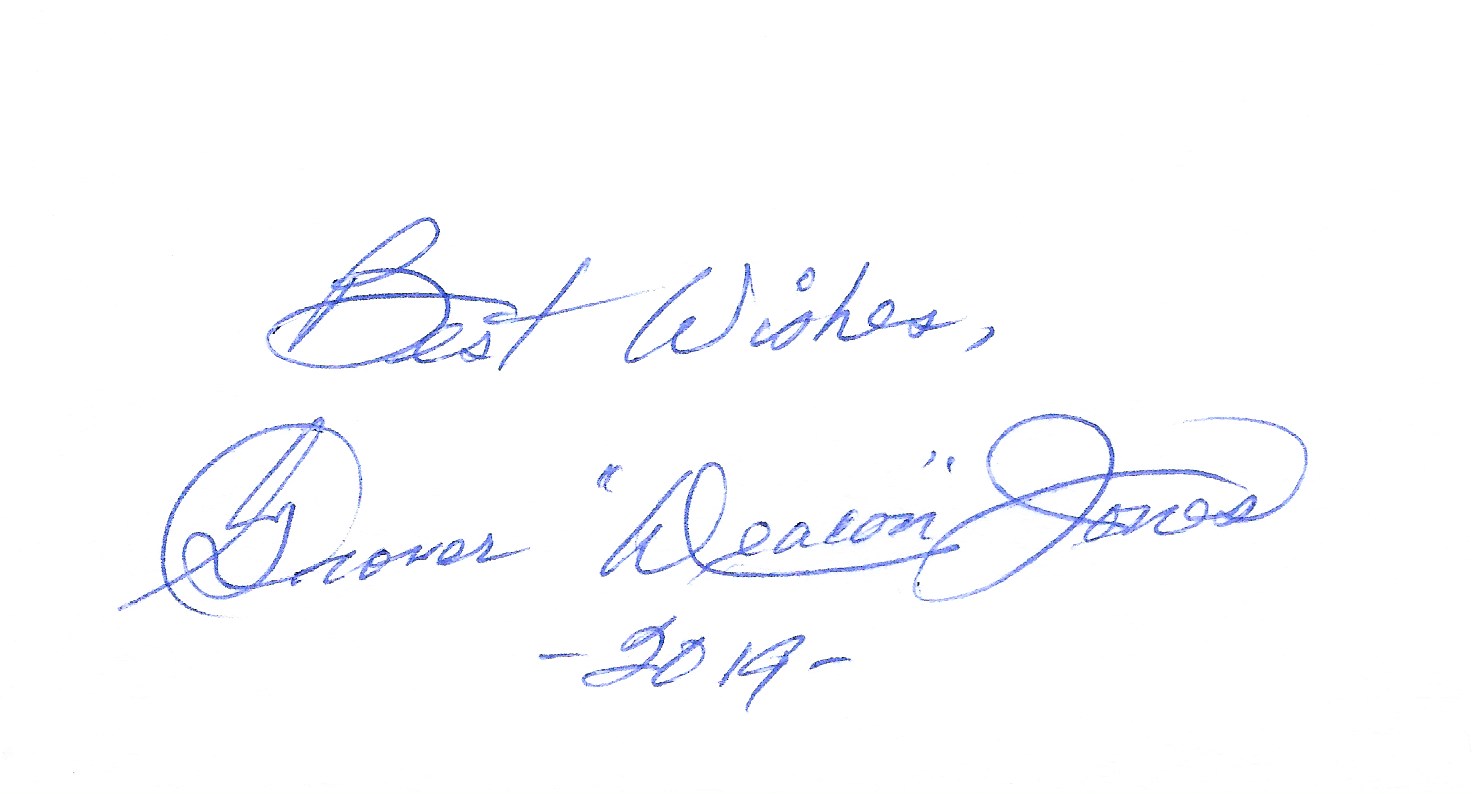 Best Wishes,
Grover "Deacon" Jones
-2019-